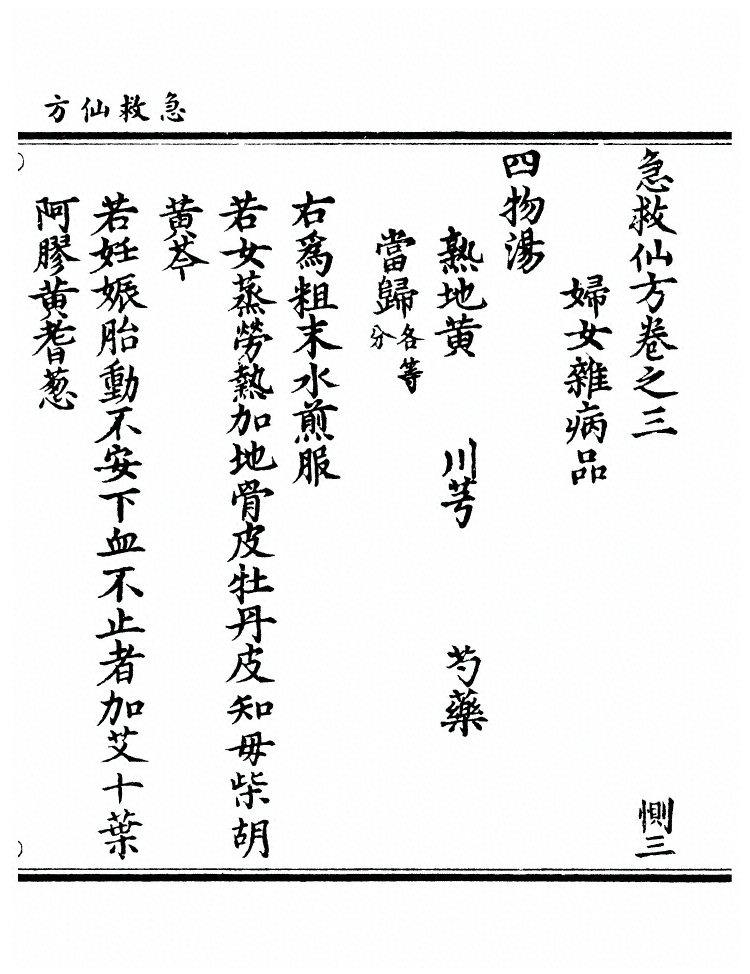 急救仙方
急救仙方卷之三 惻三
婦女雜病品
四物湯
熟地黃 川芎 芍藥
當歸各等分
右爲粗末水煎服
若女蒸勞熱加地骨皮牡丹皮知毋柴胡
黃芩
若妊娠胎動不安下血不止者加艾十葉
阿膠黃耆葱